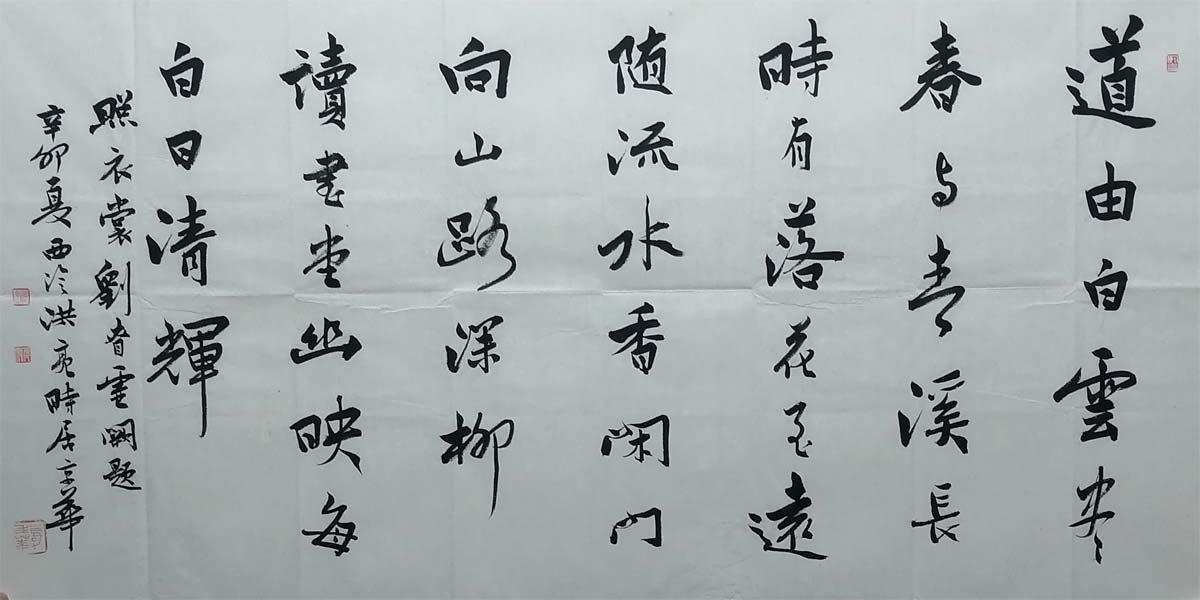 道由白雲尽
春与青溪長
時有落花至遠
随流水香閑門
向山路深柳
讀書堂幽映每
白日清輝
照衣裳劉昚虛闕題
辛卯夏西泠洪亮時居京華